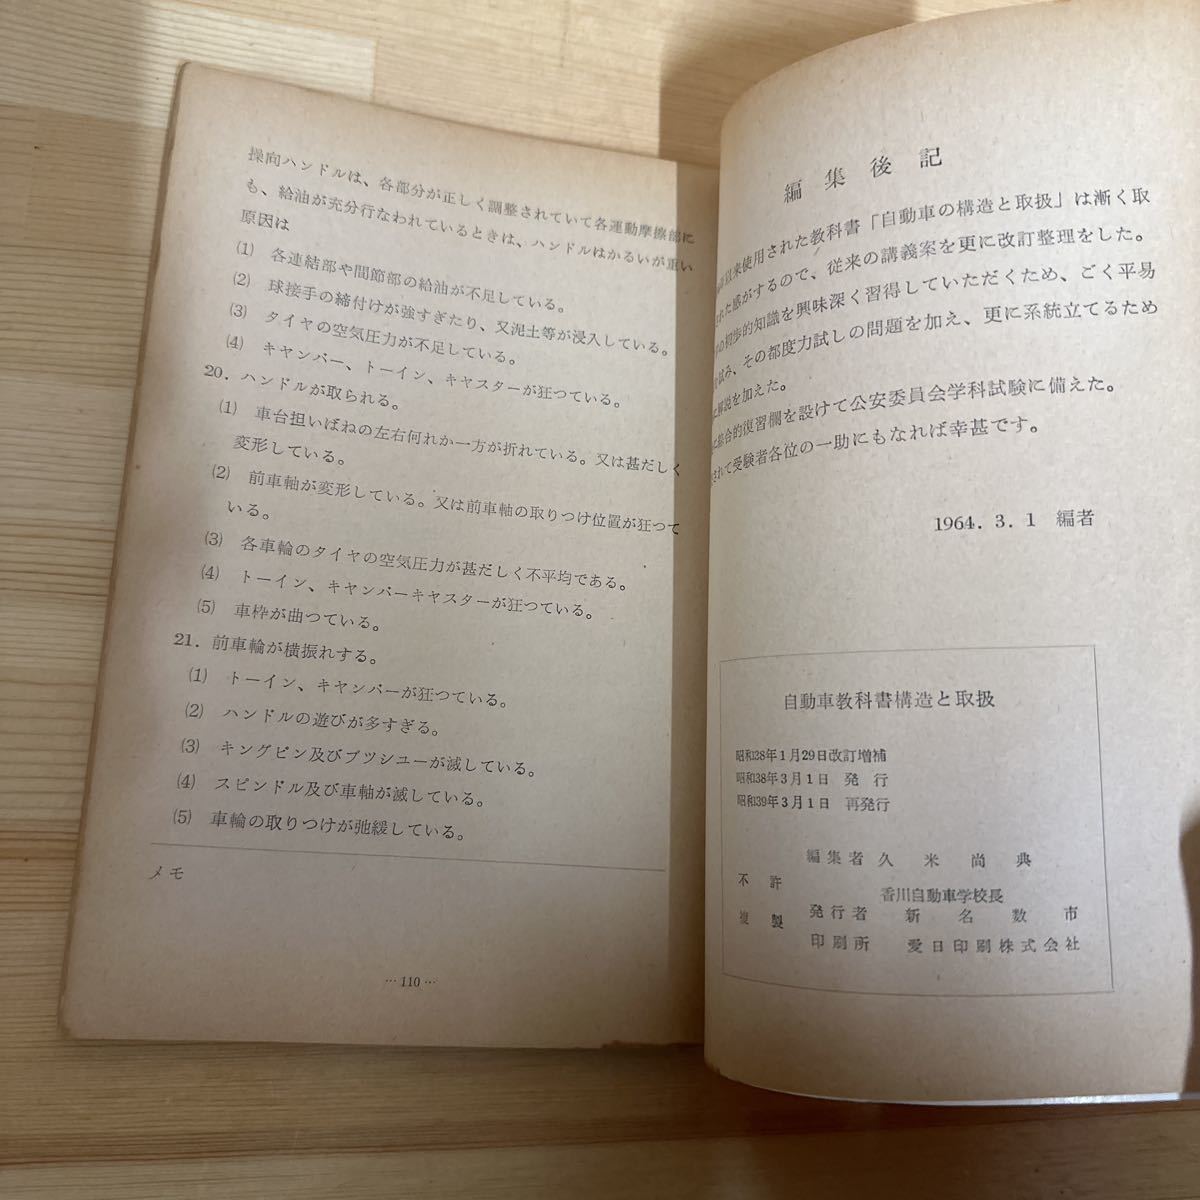 操向ハンドルは、各部分が正しく調整されていて各運動摩擦部に
も、給油が充分行なわれているときは、ハンドルはかるいが重い
原因は
(1) 各連結部や間節部の給油が不足している。
(2) 球接手の締付けが強すぎたり、又泥土等が浸入している。
(3) タイヤの空気圧力が不足している。
(4) キヤンバー、トーイン、キヤスターが狂つている。
20．ハンドルが取られる。
(1) 車台担いばねの左右何れか一方が折れている。又は甚だしく
変形している。
(2) 前車軸が変形している。又は前車軸の取りつけ位置が狂つて
いる。
(3) 各車輪のタイヤの空気圧力が甚だしく不平均である。
(4) トーイン、キヤンバーキヤスターが狂つている。
(5) 車枠が曲つている。
21．前車輪が横振れする。
(1) トーイン、キヤンバーが狂つている。
(2) ハンドルの遊びが多すぎる。
(3) キングピン及びブツシユーが滅している。
(4) スピンドル及び車軸が滅している。
(5) 車輪の取りつけが弛緩している。
メモ
…110…
編集後記
以来使用された教科書「自動車の構造と取扱」は漸く取
された感がするので、従来の講義案を更に改訂整理をした。
の初歩的知識を興味深く習得していただくため、ごく平易
試み、その都度力試しの問題を加え、更に系統立てるため
解説を加えた。
総合的復習欄を設けて公安委員会学科試験に備えた。
されて受験者各位の一助にもなれば幸甚です。
1964．3．1 編者
自動車教科書構造と取扱
昭和38年1月29日改訂増補
昭和38年3月1日 発行
昭和39年3月1日 再発行
編集者 久米尚典
不許
香川自動車学校長
複製
発行者 新名数市
印刷所 愛日印刷株式会社